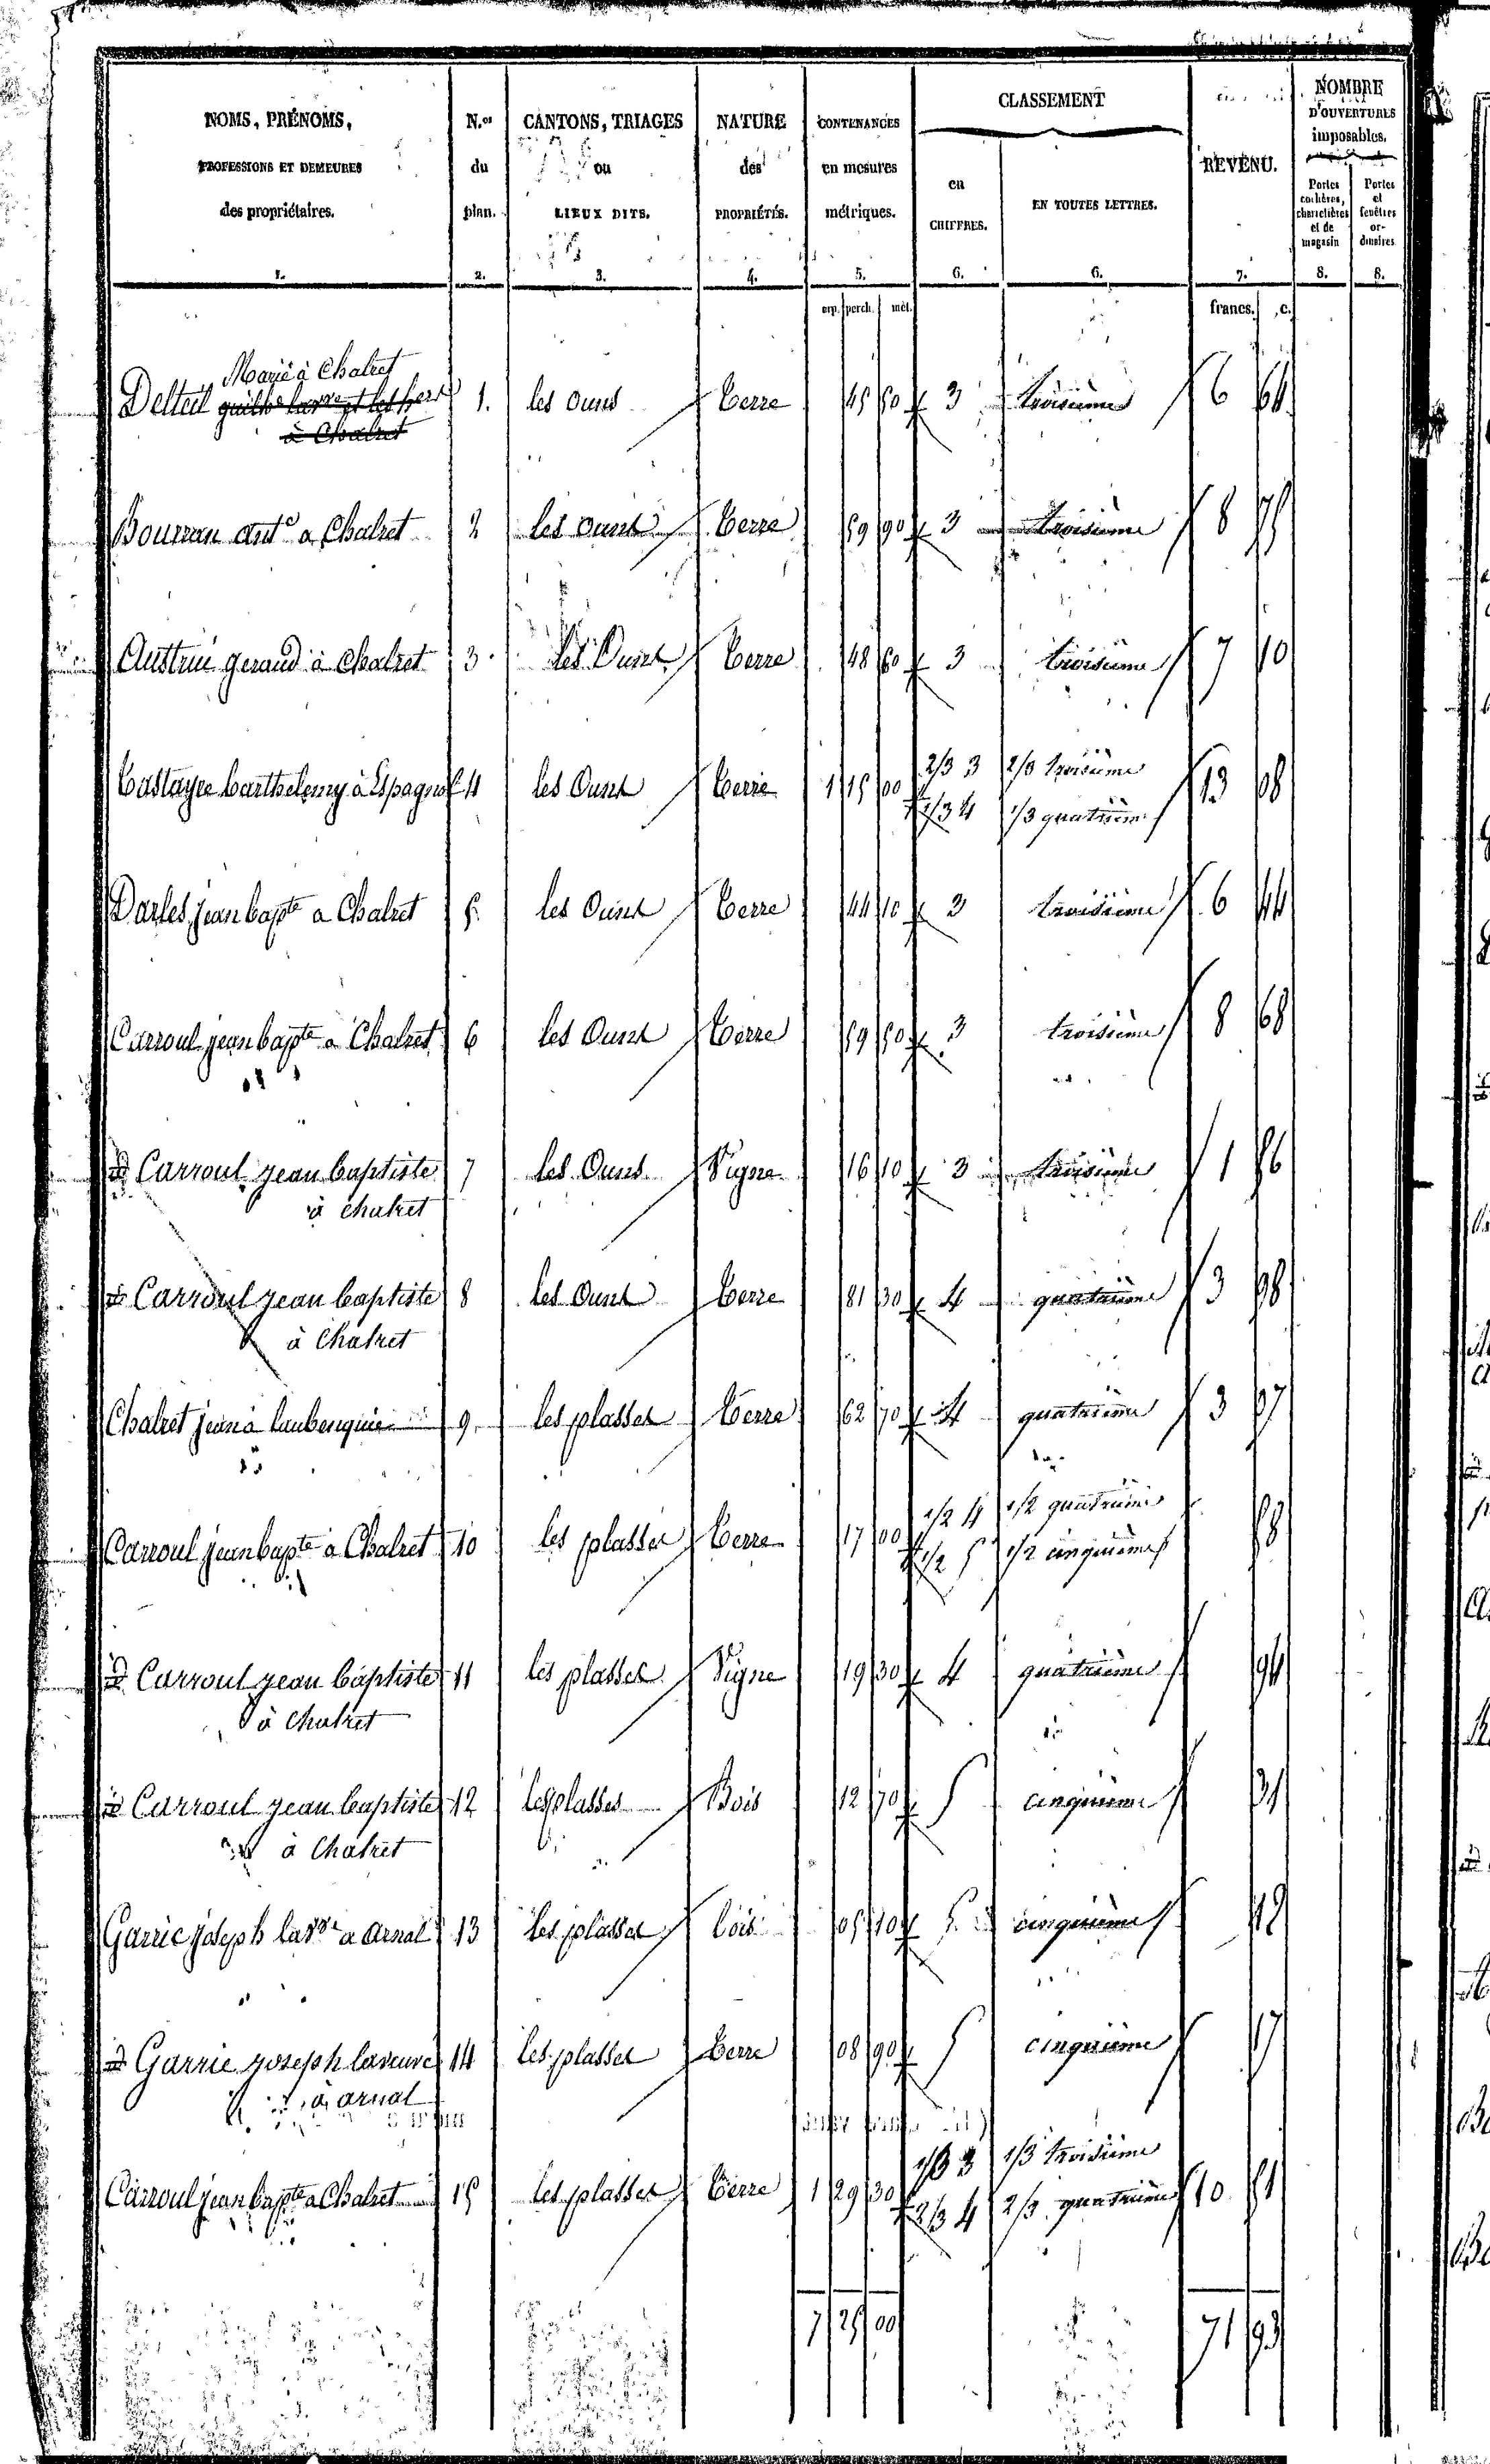 NOMS, PRÉNOMS, PROFESSIONS ET DEMEURES des propriétaires. 1.
N.os du plan. 2.
CANTONS, TRIAGES ou LIEUX DITS. 3.
NATURE des PROPRIÉTÉS. 4.
CONTENANCES en mesures métriques. 5.
CLASSEMENT
en CHIFFRES. 6.
EN TOUTES LETTRES. 6.
REVENU. 7.
NOMBRE D'OUVERTURES imposables.
Portes cochères, charretières et de magasin 8.
Portes et fenêtres ordinaires 8.
arp. perch. mèt. francs. c.
Marié à Chalret
Delteil 1. les Ouns terre 45 50 3 troisième 6 64
à Chalret
Bourran Ant.e a Chalret 2 les Ouns terre 59 90 3 troisième 8 75
Austrui geraud à Chalret 3 les Ouns terre 48 60 3 troisième 7 10
2/3 3 2/3 troisième
Castayre barthelemy à Espagnol 4 les Ouns terre 1 15 00 13 08
1/3 4 1/3 quatrième
Darles jean bapte a Chalret 5 les Ouns terre 44 10 3 troisième 6 44
Carroul jean bapte a Chalret 6 les Ouns terre 59 50 3 troisième 8 68
id Carroul jean baptiste 7 les Ouns Vigne 16 10 3 troisième 1 56
à Chalret
id Carroul jean baptiste 8 les Ouns terre 81 30 4 quatrième 3 98
à Chalret
Chalret jean à 9 les plasses terre 62 70 4 quatrième 3 07
1/2 4 1/2 quatrième
Carroul jean bapte à Chalret 10 les plasses terre 17 00 58
1/2 5 1/2 cinquième
id Carroul jean baptiste 11 les plasses Vigne 19 30 4 quatrième 94
à Chalret
id Carroul jean baptiste 12 les plasses Bois 12 70 5 cinquième 31
à Chalret
Garric joseph la a Arnal 13 les plasses bois 05 10 5 cinquième 12
id Garric joseph la veuve 14 les plasses terre 08 90 5 cinquième 17
à arnal
1/3 3 1/3 troisième
Carroul jean bapte a Chalret 15 les plasses terre 1 29 30 10 51
2/3 4 2/3 quatrième
7 25 00 71 93